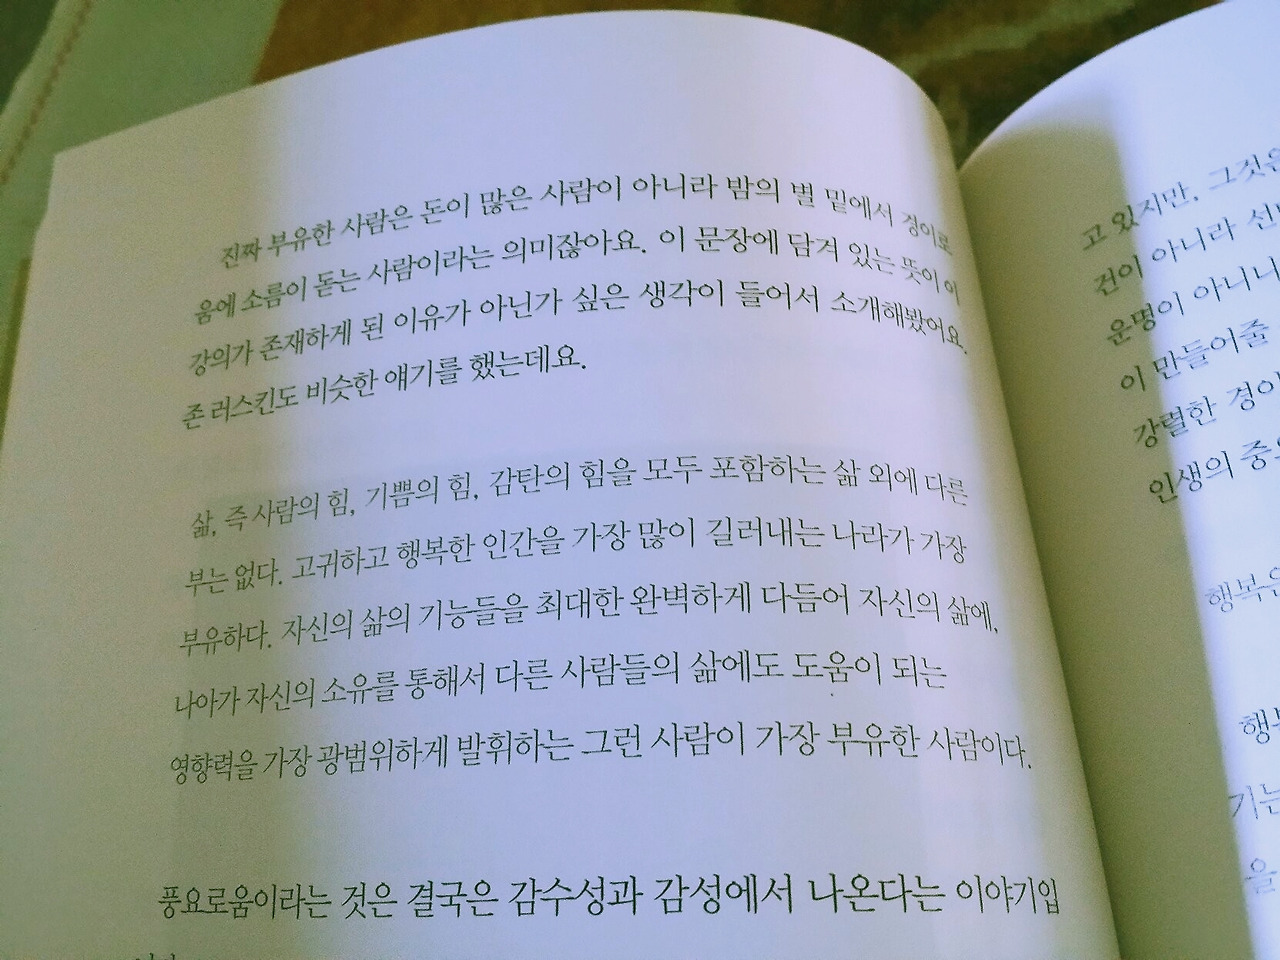 진짜 부유한 사람은 돈이 많은 사람이 아니라 밤의 별 밑에서 경이로
움에 소름이 돋는 사람이라는 의미잖아요. 이 문장에 담겨 있는 뜻이 이
강의가 존재하게 된 이유가 아닌가 싶은 생각이 들어서 소개해봤어요.
존 러스킨도 비슷한 얘기를 했는데요.
삶, 즉 사람의 힘, 기쁨의 힘, 감탄의 힘을 모두 포함하는 삶 외에 다른
부는 없다. 고귀하고 행복한 인간을 가장 많이 길러내는 나라가 가장
부유하다. 자신의 삶의 기능들을 최대한 완벽하게 다듬어 자신의 삶에,
나아가 자신의 소유를 통해서 다른 사람들의 삶에도 도움이 되는
영향력을 가장 광범위하게 발휘하는 그런 사람이 가장 부유한 사람이다.
풍요로움이라는 것은 결국은 감수성과 감성에서 나온다는 이야기입
고 있지만, 그것은
건이 아니라 신
운명이 아니니
이 만들어줄
강렬한 경이
인생의 중요
행복은
행복
기능
을